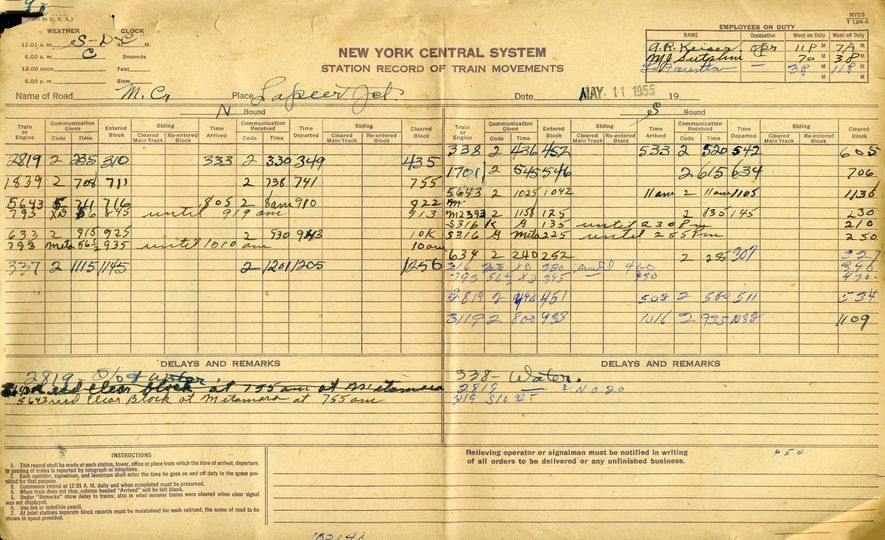 NYCS
T 134-A
WEATHER CLOCK
EMPLOYEES ON DUTY
12.01 a. m. S-DC At M.
NAME Occupation Went on Duty Went off Duty
6.00 a. m. C Seconds
A.R. Keiser Opr 11P M 7A M
NEW YORK CENTRAL SYSTEM
M.J. Sutphin " 7a M 3P M
12.00 noon Fast
STATION RECORD OF TRAIN MOVEMENTS
3P M 11P M
6.00 p. m. Slow
M M
Name of Road M.C. Place Lapeer Jct. Date MAY 11 1955 19
N Bound S Bound
Train or Engine Communication Given Code Time Entered Block Siding Cleared Main Track Re-entered Block Time Arrived Communication Received Code Time Time Departed Siding Cleared Main Track Re-entered Block Cleared Block
Train or Engine Communication Given Code Time Entered Block Siding Cleared Main Track Re-entered Block Time Arrived Communication Received Code Time Time Departed Siding Cleared Main Track Re-entered Block Cleared Block
2819 2 235 310 333 2 330 349 435
1839 2 708 711 2 738 741 755
5643 5 711 716 805 2 8am 910 922
793 845 until 919 am 913
633 2 915 925 2 930 943 10K
793 Meta 935 until 1010 am 10am
337 2 1115 1145 2 1201 1205 1256
338 2 436 452 533 2 520 542 605
1701 2 545 546 2 615 634 706
5643 2 1025 1042 11am 2 11am 1105 1130
M2393 2 1158 125 2 135 145 230
S316 K A 135 until 230 Pm 210
S316 Meta 225 until 255 Pm 250
634 2 240 252 2 255 307 327
316 XD until
793 XD 345
2819 2 451 508 2 500 511 534
3119 2 800 933 1016 2 935 1032 1109
DELAYS AND REMARKS
2819 - Water
at 755 am at Metamora
5643 red Clear Block at Metamora at 755 am
DELAYS AND REMARKS
338 - Water.
2819
INSTRUCTIONS
1. This record shall be made at each station, tower, office or place from which the time of arrival, departure, or passing of trains is reported by telegraph or telephone.
2. Each operator, signalman, and leverman shall enter the time he goes on and off duty in the space provided for that purpose.
3. Commence record at 12:01 A. M. daily and when completed must be preserved.
4. When train does not stop, column headed "Arrived" will be left blank.
5. Under "Remarks" show delay to trains; also in what manner trains were cleared when clear signal was not displayed.
6. Use ink or indelible pencil.
7. At joint stations separate block records must be maintained for each railroad, the name of road to be shown in space provided.
Relieving operator or signalman must be notified in writing
of all orders to be delivered or any unfinished business.
450